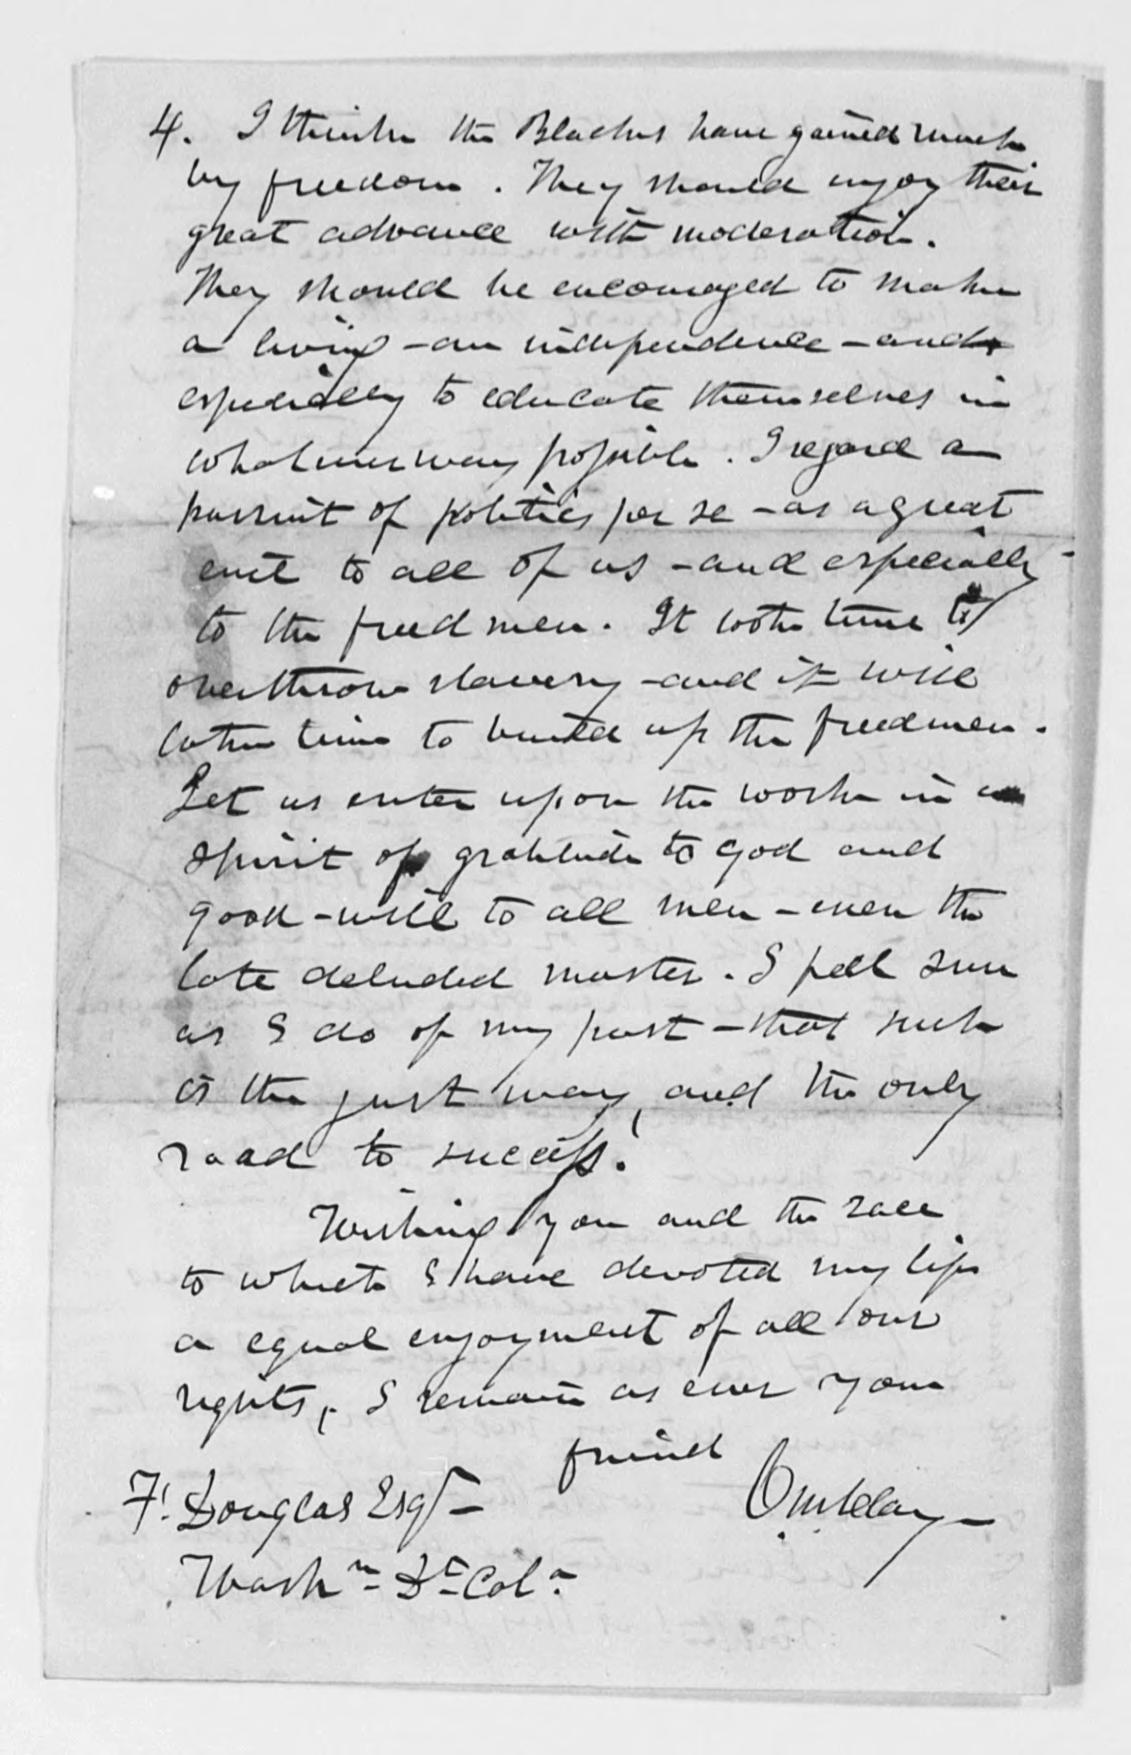 4. I think the Blacks have gained much
by freedom. They should enjoy their
great advance with moderation.
They should be encouraged to make
a living - an independence - and
especially to educate themselves in
whatever way possible. I regard a
pursuit of politics per se - as a great
evil to all of us - and especially
to the freedmen. It took time to
overthrow slavery - and it will
take time to build up the freedmen.
Let us enter upon the work in a
spirit of gratitude to God and
good-will to all men - even the
late deluded master. I feel sure
as I do of my past - that such
is the just way, and the only
road to success.
Wishing you and the race
to which I have devoted my life
a equal enjoyment of all our
rights, I remain as ever your
friend
F. Douglas Esqr -
Washn Dt Cola